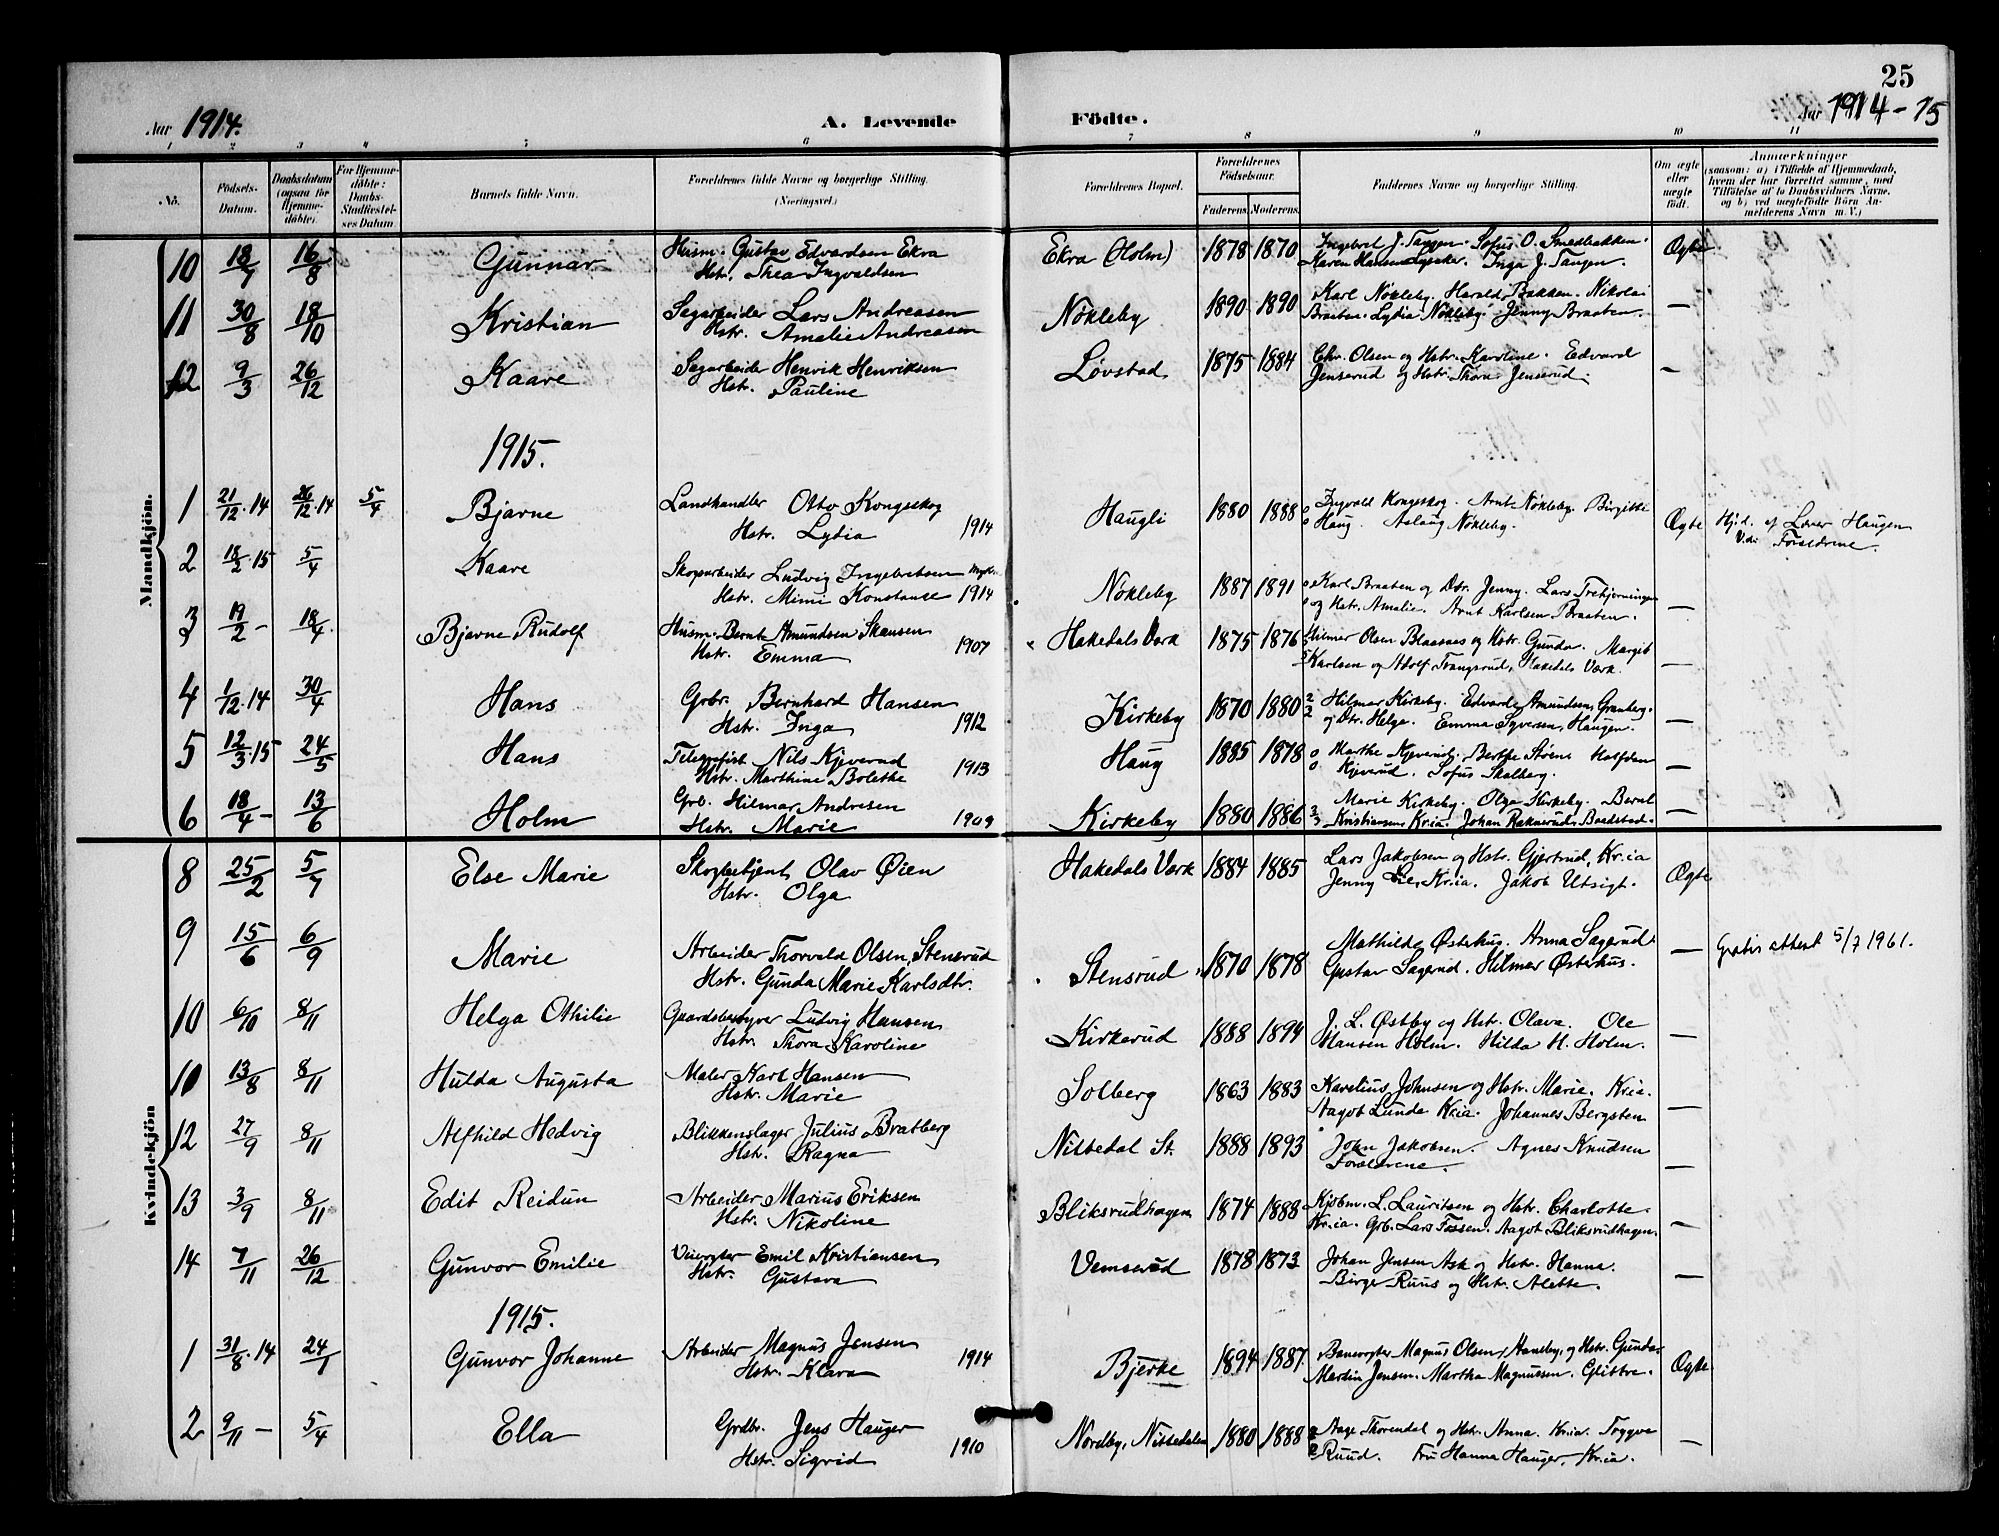 25
Aar 1914. A. Levende Födte. Aar 1914-15
1 2 3 4 5 6 7 8 9 10 11
No. Födsels-Datum. Daabsdatum (ogsaa for Hjemmedöbte). For Hjemmedöbte: Daabs-Stadfæstelses Datum Barnets fulde Navn. Forældrenes fulde Navne og borgerlige Stilling. (Næringsvei.) Forældrenes Bopæl. Forældrenes Födselsaar. Faderens. Moderens. Faddernes Navne og borgerlige Stilling. Om ægte eller uægte födt. Anmærkninger (saasom: a) i Tilfælde af Hjemmedaab, hvem der har forrettet samme, med Tilföielse af to Daabsvidners Navne. og b) ved uægtefödte Börn Anmelderens Navn m. V.)
Mandkjön.
10 18/7 16/8 Gunnar Husm. Gustav Edvardsen Ekra Ekra (Holm) 1878 1870 Ingebret J. Tangen. Sofus O. Smedbakken. Ægte
Hstr. Thea Ingvaldsen Karen Hansen Inga J. Tangen.
11 30/8 18/10 Kristian Sagarbeider Lars Andreasen Nökleby 1890 1890 Karl Nökleby. Harald Bakken. Nikolai —
Hstr. Amalie Andreasen Braaten. Lydia Nökleby. Jenny Braaten.
12 9/3 26/12 Kaare Sagarbeider Henrik Henriksen Løvstad 1875 1884 Chr. Olsen og Hstr. Karoline. Edvard —
Hstr. Pauline Jenserud og Hstr. Thora Jenserud.
1915.
1 21/12.14 26/12.14 5/4 Bjarne Landhandler Otto Kongeskog Haugli 1880 1888 Ingvald Kongeskog. Arnt Nökleby. Birgitte Ægte Hj.d. af Lærer Haugen
Hstr. Lydia 1914 Haug. Aslaug Nökleby. V.d: Forældrene.
2 18/2.15 5/4 Kaare Skogarbeider Ludvig Ingebretsen Nökleby 1887 1891 Karl Braaten og Dtr. Jenny. Lars Tretjerningen —
Hstr. Mimi Konstanse 1914 og Hstr. Amalie. Arnt Karlsen Braaten.
3 19/2 - 18/4. Bjarne Rudolf Husm. Bernt Amundsen Skansen Hakedals Værk 1875 1876 Hilmar Olsen Blaasaas og Hstr. Gunda. Margit —
Hstr. Emma 1907 Karlsen og Adolf Trangsrud, Hakedals Værk.
4 1/12.14 30/4 Hans Grbr. Bernhard Hansen Kirkeby 1870 1880 Hilmar Kirkeby. Edvard Amundsen, Granberg. —
Hstr. Inga 1912 og Dtr. Helga. Emma Syversen, Haugen.
5 12/3.15 24/5 Hans Telegrafist Nils Kjeverud Haug 1885 1878 Marthe Kjeverud. Berthe Støen. Halfdan —
Hstr. Marthine Bolette 1913 Kjeverud. Sofus Skalberg.
6 18/4 - 13/6 Holm Grb. Hilmar Andresen Kirkeby 1880 1886 Marie Kirkeby. Olga Kirkeby. Bernt —
Hstr. Marie 1909 Kristiansen Kr.ia. Johan Raknerud, Baadstad.
Kvindekjön
8 25/2 5/7 Else Marie Skogbetjent Olav Øien Hakedals Værk 1884 1885 Lars Jakobsen og Hstr. Gjertrud, Kr.ia Ægte
Hstr. Olga Jenny Lie, Kr.ia. Jakob Utsigt.
9 15/6 6/9 Marie Arbeider Thorvald Olsen, Stensrud Stensrud 1870 1878 Mathilde Østerhus. Anna Sagerud — Gratis attest 5/7 1961.
Hstr. Gunda Marie Karlsdtr. Gustav Sagerud. Hilmar Østerhus.
10 6/10 8/11 Helga Othilie Gaardsbestyrer Ludvig Hansen Kirkerud 1888 1894 J. L. Østby og Hstr. Olava. Ole —
Hstr. Thora Karoline Hansen Holm. Hilda H. Holm.
10 13/8 8/11 Hulda Augusta Maler Karl Hansen Solberg 1863 1883 Karelius Johnsen og Hstr. Marie. Kr.ia. —
Hstr. Marie Aagot Lunde Kr.ia. Johannes Bergsten
12 27/9 8/11 Alfhild Hedvig Blikkenslager Julius Bratberg Nittedal St. 1888 1893 John Jakobsen. Agnes Knudsen —
Hstr. Ragna Forældrene.
13 3/9 8/11 Edit Reidun Arbeider Marius Eriksen Bliksrudhagen 1874 1888 Kjøbm. L. Lauritsen og Hstr. Charlotte. —
Hstr. Nikoline Kr.ia. Grb. Lars Fossen. Aagot Bliksrudhagen.
14 7/11 26/12 Gunvor Emilie Veivogter Emil Kristiansen Vemserud 1878 1873 Johan Jensen Ask og Hstr. Hanna. —
Hstr. Gustava Birger Ruus og Hstr. Alette.
1915.
1 31/8.14 24/1 Gunvor Johanne Arbeider Magnus Jensen Bjerke 1894 1887 Banevogter Magnus Olsen, Haneby, og Hstr. Gunda Ægte
Hstr. Klara 1914 Martin Jensen. Martha Magnussen. Glittre.
2 9/11 — 5/4 Ella Grdbr. Jens Hauger Nordby, Nittedalen 1880 1888 Aage Thorendal og Hstr. Anna. Kr.ia. Trygve —
Hstr. Sigrid 1910 Ruud. Fru Hanna Hauger, Kr.ia.